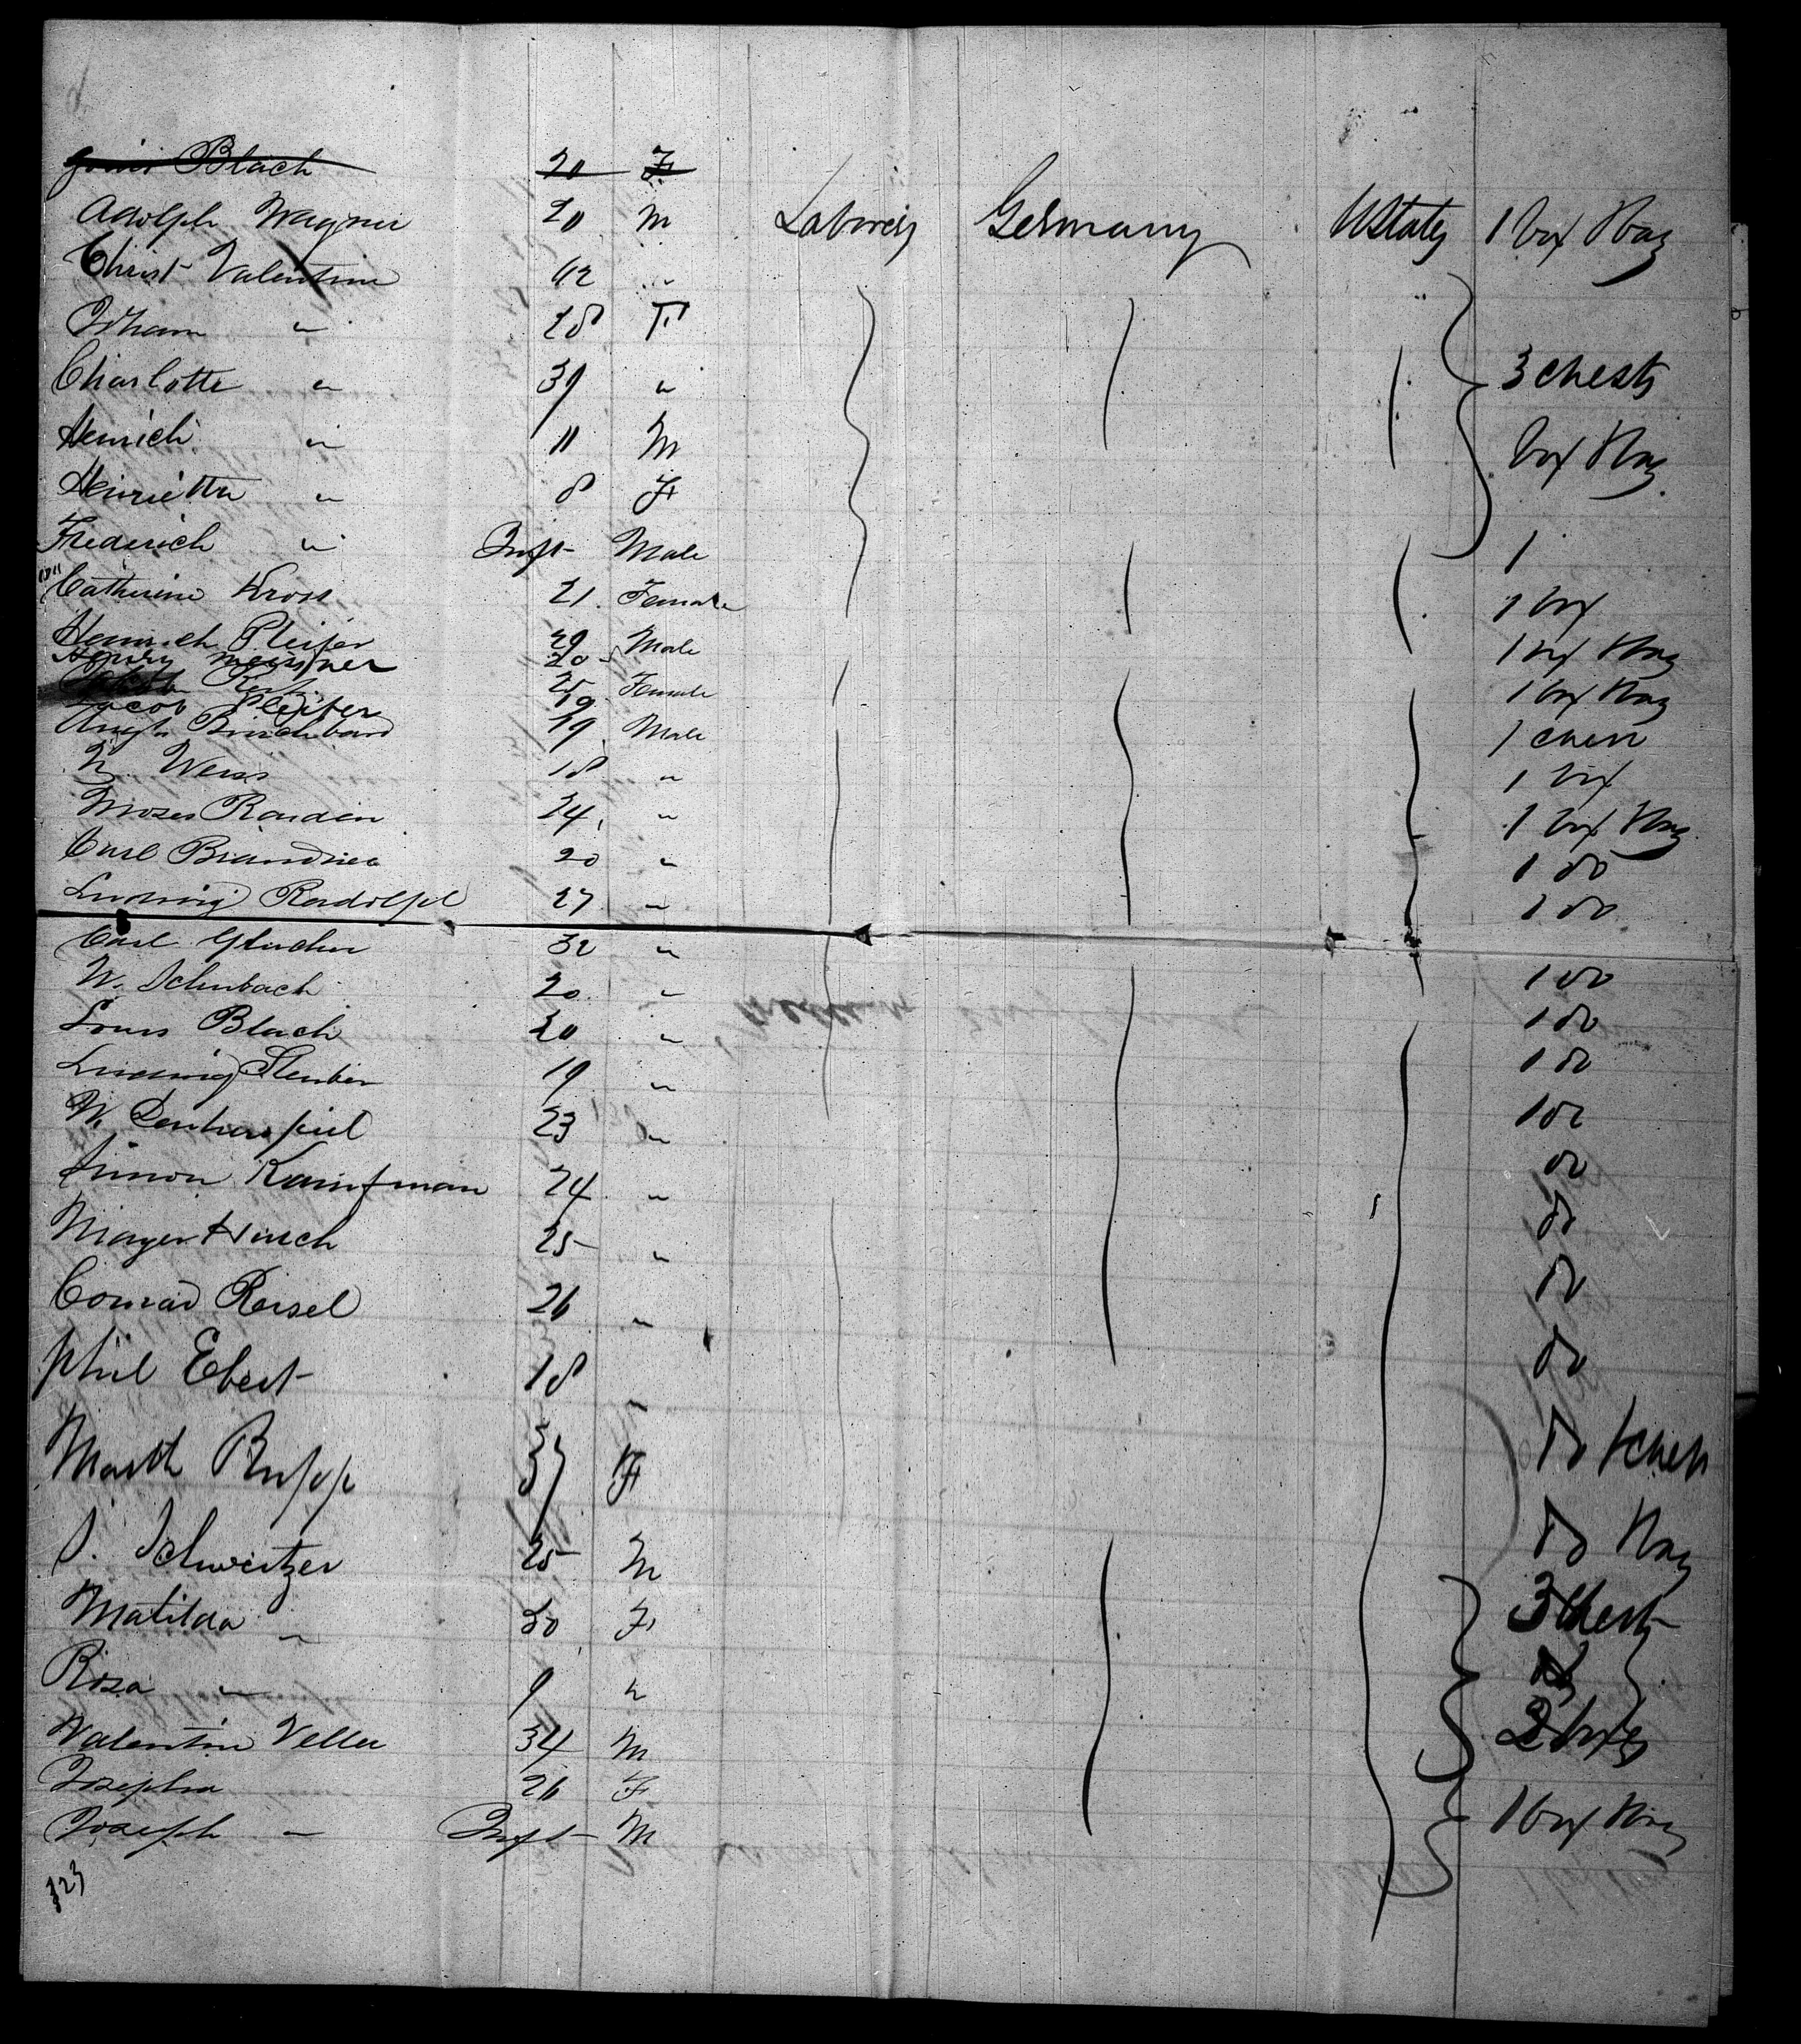 Blach 20 F
Adolph Wagner 20 M Laborers Germany UStates 1 box Bag
Christ Valentine 42 "
" 28 F
Charlotte " 39 " 3 chests
Henrich " 11 M box Bag
Henrietta " 8 F
Frederich " Inft Male 1
Catherine Kross 21 Female 1 box
Heinrich Pleifer 29 Male 1 box Bag
Henry Meissner 20
25 Female 1 box Bag
Jacob Pleifer 29
19 Male 1 chest
Weiss 18 " 1 box
Moses 24 " 1 box Bag
Carl 20 " 1 do
Ludwig Radolph 27 " 1 do
Carl 32 "
W. Schubach 20 " 1 do
Louis Blach 20 " 1 do
Ludwig Steuber 19 " 1 do
W. 23 " 1 do
Simon Kaufman 24 " do
Mayer Hirsch 25 " do
Conrad Reisel 26 " do
Phil Ebert 18 " do
Marth Rupp 37 F do 1 chest
S. Schweitzer 25 M do Bag
Matilda " 30 F 3 Chest
Rosa " 9 "
Valentin Veller 34 M 2 boxes
Josepha 26 F
Joseph " Inft M 1 box Bag
323